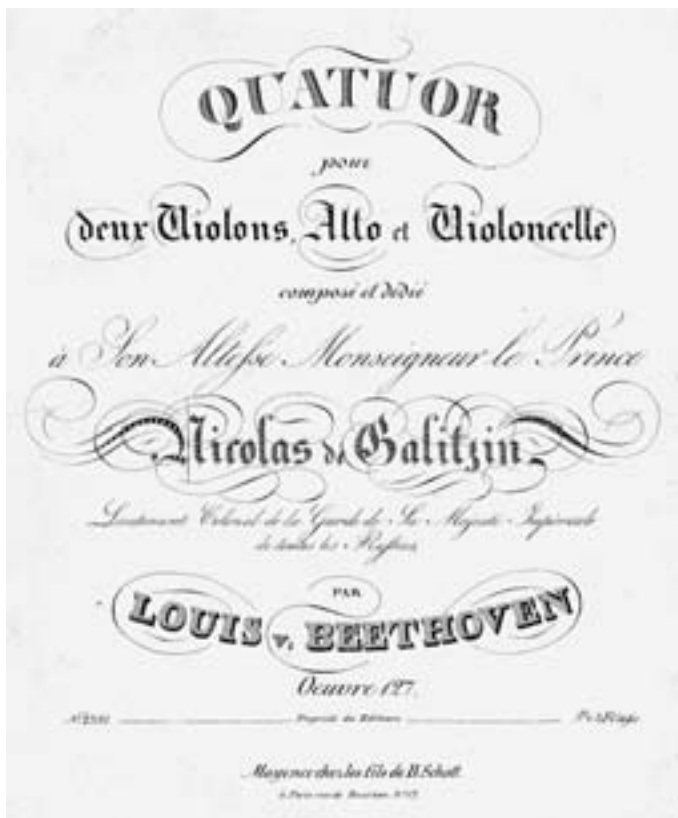 QUATUOR
pour
deux Violons, Alto et Violoncelle
composé et dédié
à Son Altesse Monseigneur le Prince
Nicolas de Galitzin
Lieutenant Colonel de la Garde de Sa Majesté Impériale
de toutes les Russies
PAR
LOUIS v. BEETHOVEN
Oeuvre 127.
Propriété des Editeurs
Mayence chez les fils de B. Schott.
à Paris rue de Bourbon N° 17